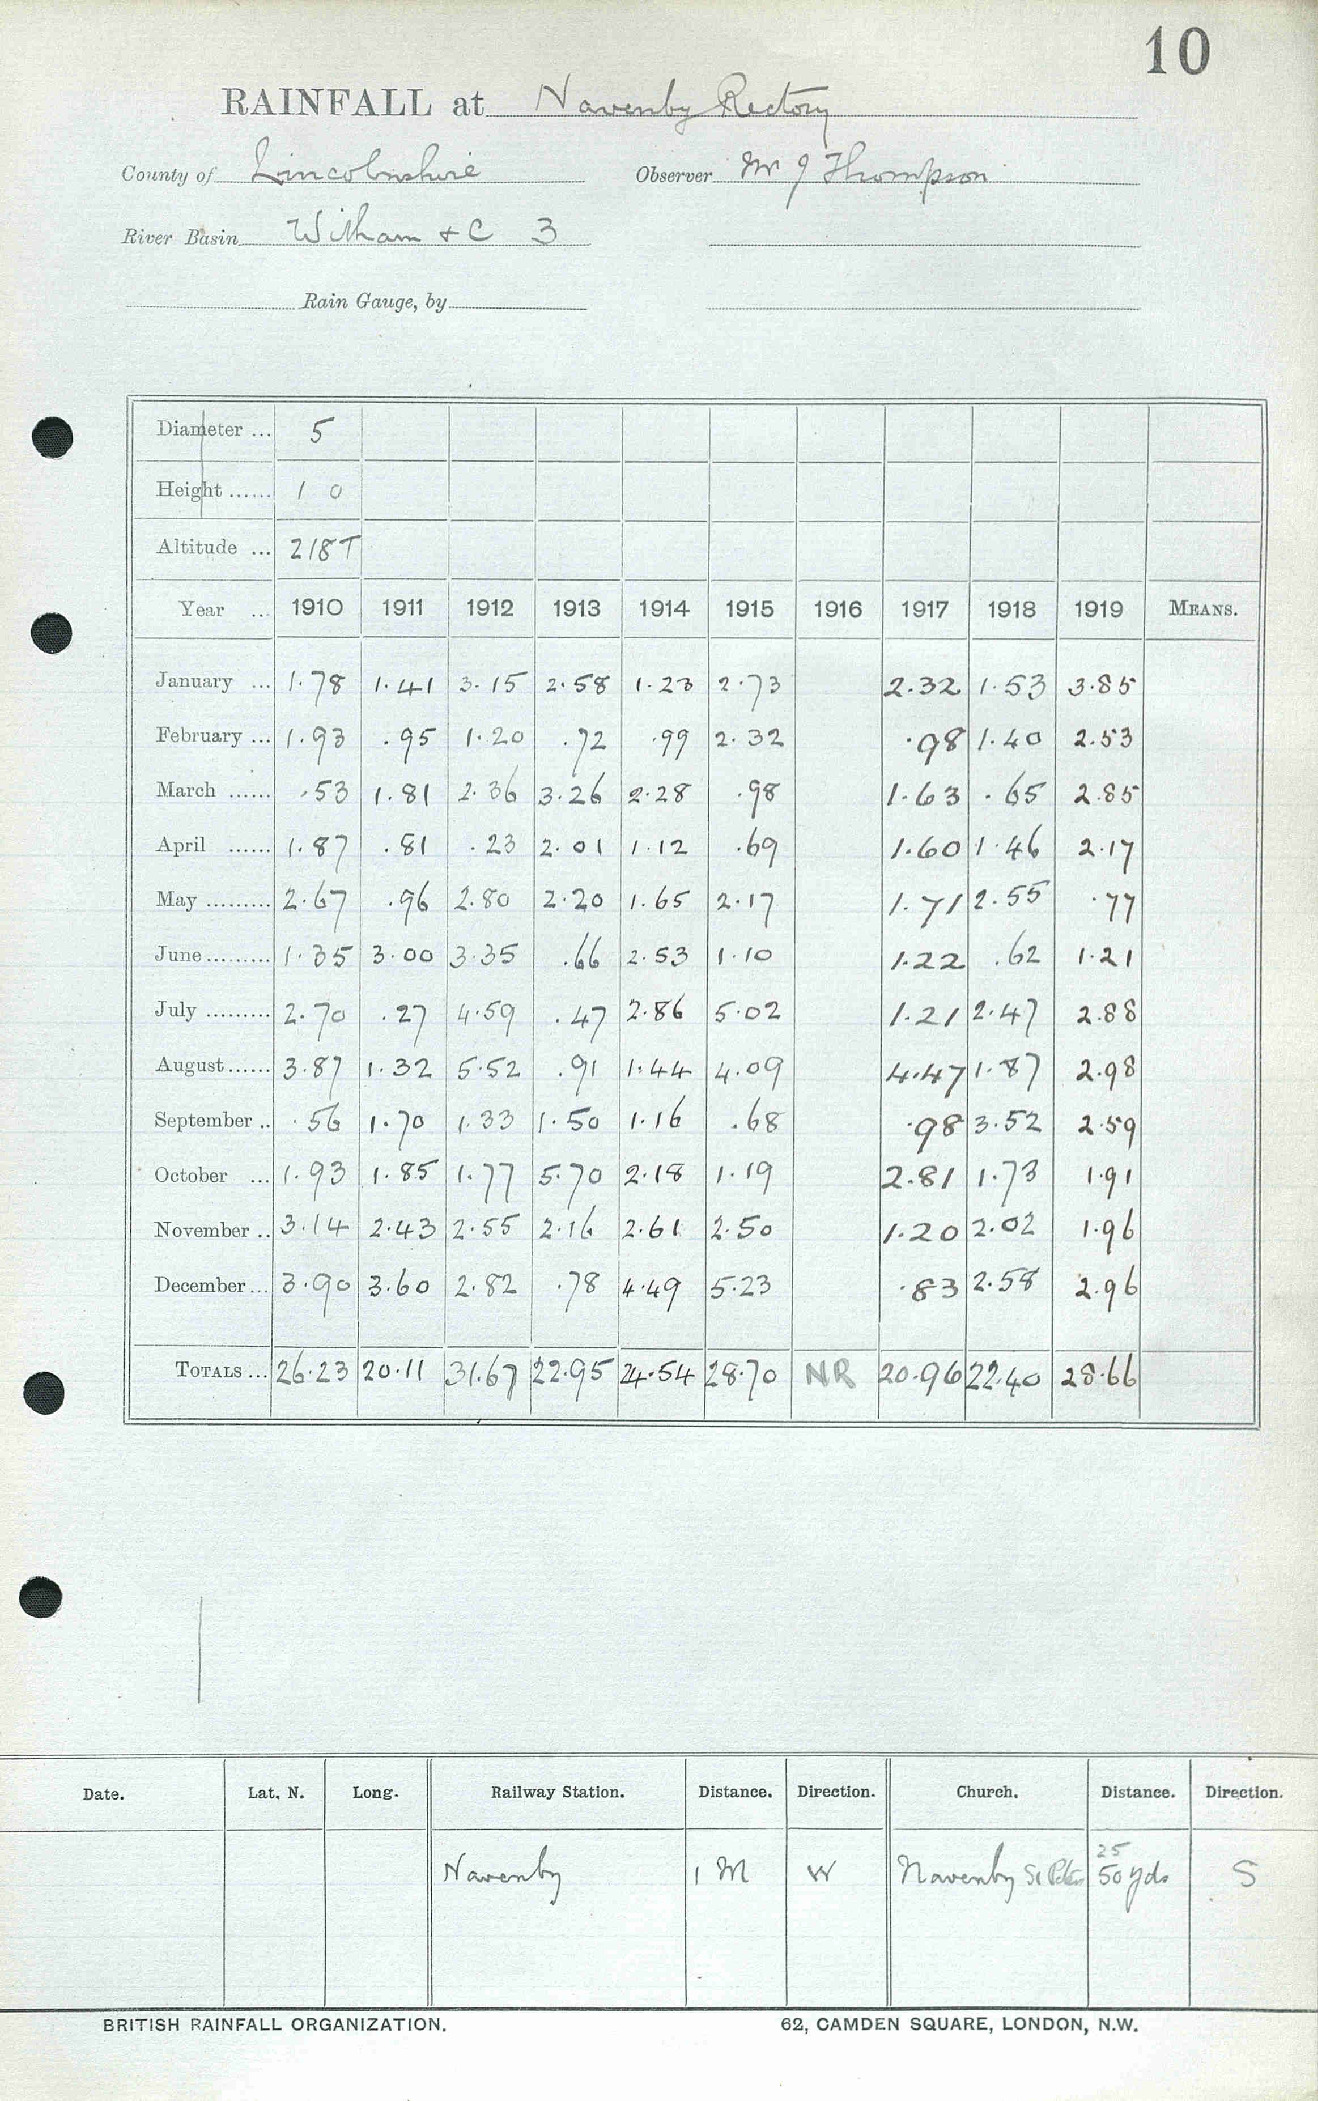 10
RAINFALL at Navenby Rectory
County of Lincolnshire Observer Mr J Thompson
River Basin Witham & C 3
Rain Gauge, by
Diameter ... 5
Height ...... 1 0
Altitude ... 218T
Year ... 1910 1911 1912 1913 1914 1915 1916 1917 1918 1919 MEANS.
January ... 1.78 1.41 3.15 2.58 1.23 2.73 2.32 1.53 3.85
February ... 1.93 .95 1.20 .72 .99 2.32 .98 1.40 2.53
March ...... .53 1.81 2.36 3.26 2.28 .98 1.63 .65 2.85
April ...... 1.87 .81 .23 2.01 1.12 .69 1.60 1.46 2.17
May ......... 2.67 .96 2.80 2.20 1.65 2.17 1.71 2.55 .77
June ......... 1.35 3.00 3.35 .66 2.53 1.10 1.22 .62 1.21
July ......... 2.70 .27 4.59 .47 2.86 5.02 1.21 2.47 2.88
August ...... 3.87 1.32 5.52 .91 1.44 4.09 4.47 1.87 2.98
September .. .56 1.70 1.33 1.50 1.16 .68 .98 3.52 2.59
October ... 1.93 1.85 1.77 5.70 2.18 1.19 2.81 1.73 1.91
November .. 3.14 2.43 2.55 2.16 2.61 2.50 1.20 2.02 1.96
December ... 3.90 3.60 2.82 .78 4.49 5.23 .83 2.58 2.96
TOTALS ... 26.23 20.11 31.67 22.95 24.54 28.70 NR 20.96 22.40 28.66
Date. Lat. N. Long. Railway Station. Distance. Direction. Church. Distance. Direction.
25
Navenby 1 M W Navenby St Peters 50 yds S
BRITISH RAINFALL ORGANIZATION. 62, CAMDEN SQUARE, LONDON, N.W.